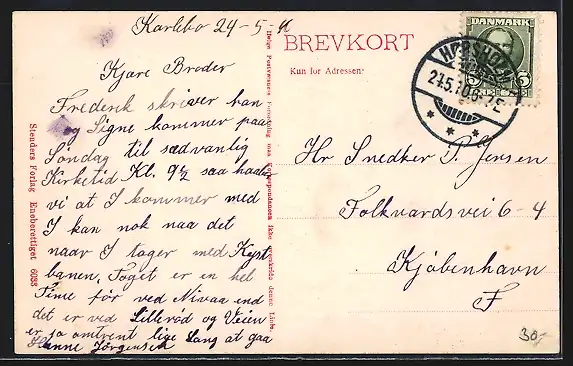 Karlebo 24-5-
Kjære Broder
Frederik skriver han
og Signe kommer paa
Søndag til sædvanlig
Kirketid Kl. 9½ saa haaber
vi at I kommer med
I kan nok naa det
naar I tager med Kyst
banen, Toget er en hel
Time før ved Nivaa end
det er ved Lillerød og Veien
er jo omtrent lige lang at gaa
Hanne Jørgensen
Stenders Forlag Eneberettiget 6088
BREVKORT
Kun for Adressen
DANMARK
5 5
HØRSHOLM
Hr Snedker P. Jensen
Folkvardsvei 6-4
Kjøbenhavn
F
30,-